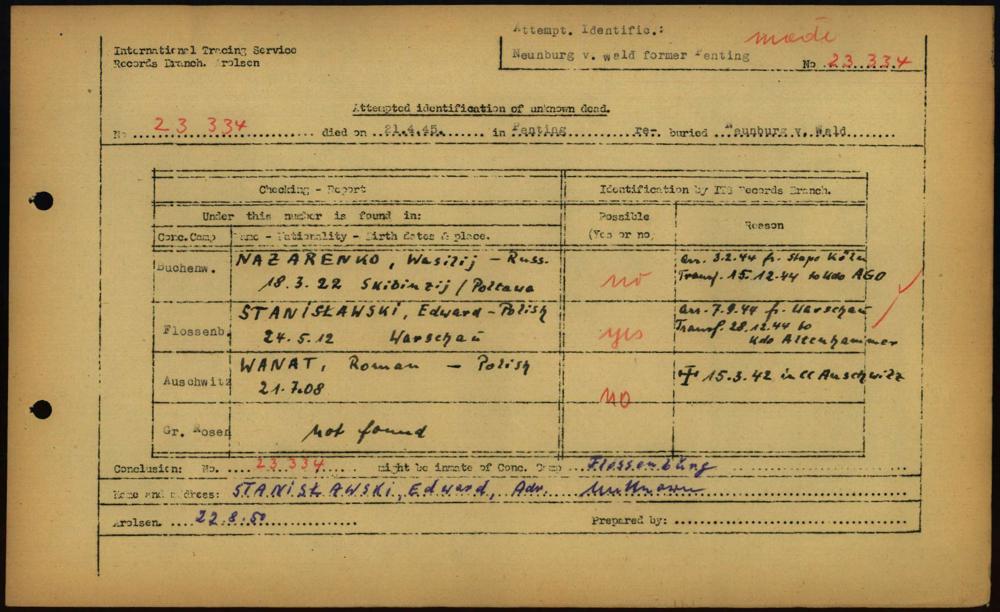 International Tracing Service
Records Branch. Arolsen
Attempt. Identific.: made
Neunburg v. wald former Penting
No 23 334
Attempted identification of unknown dead.
No 23 334 died on 21.4.45. in Penting rer. buried Neunburg v. Wald
Checking - Report
Identification by ITS Records Branch.
Under this number is found in:
Possible
(Yes or no)
Reason
Conc.Camp
Name - Nationality - Birth dates & place.
Buchenw.
NAZARENKO, Wasilij - Russ.
18.3.22 Skibinzij / Poltawa
no
arr. 3.2.44 fr. Stapo Köln
Transf. 15.12.44 to Kdo AGO
Flossenb.
STANISŁAWSKI, Edward - Polish
24.5.12 Warschau
yes
arr. 7.9.44 fr. Warschau
Transf. 28.12.44 to
Kdo Altenhammer
Auschwitz
WANAT, Roman - Polish
21.7.08
NO
15.3.42 in CC Auschwitz
Gr. Rosen
not found
Conclusion: No. 23 334 might be inmate of Conc. Camp Flossenbürg
Name and address: STANISŁAWSKI, Edward, Adr. unknown
Arolsen. 22.8.50 Prepared by: